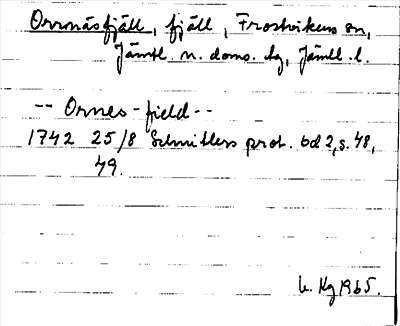 Orrnäsfjäll, fjäll, Frostvikens sn,
Jämtl. n. doms. hg, Jämtl. l.
-- Ornes-field --
1742 25/8 Schnitlers prot. bd 2, s. 48,
49.
L. Hg 1965.